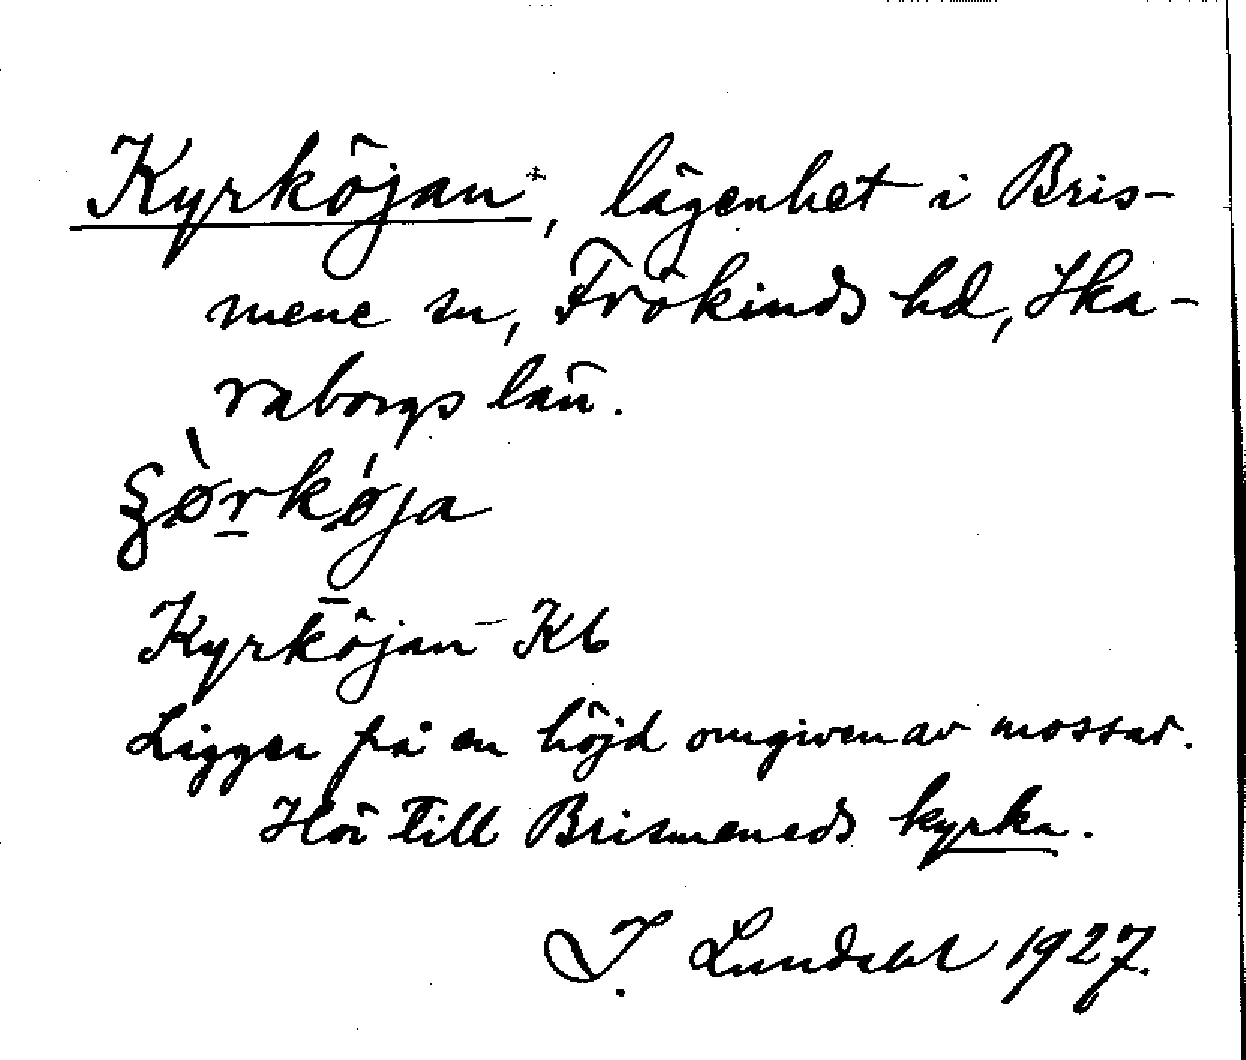 Kyrköjan, lägenhet i Bris-
mene sn, Frökinds hd, Ska-
raborgs län.
Kyrköjan Kb
Ligger på en höjd omgiven av mossar.
Hör till Brismeneds kyrka.
1927.